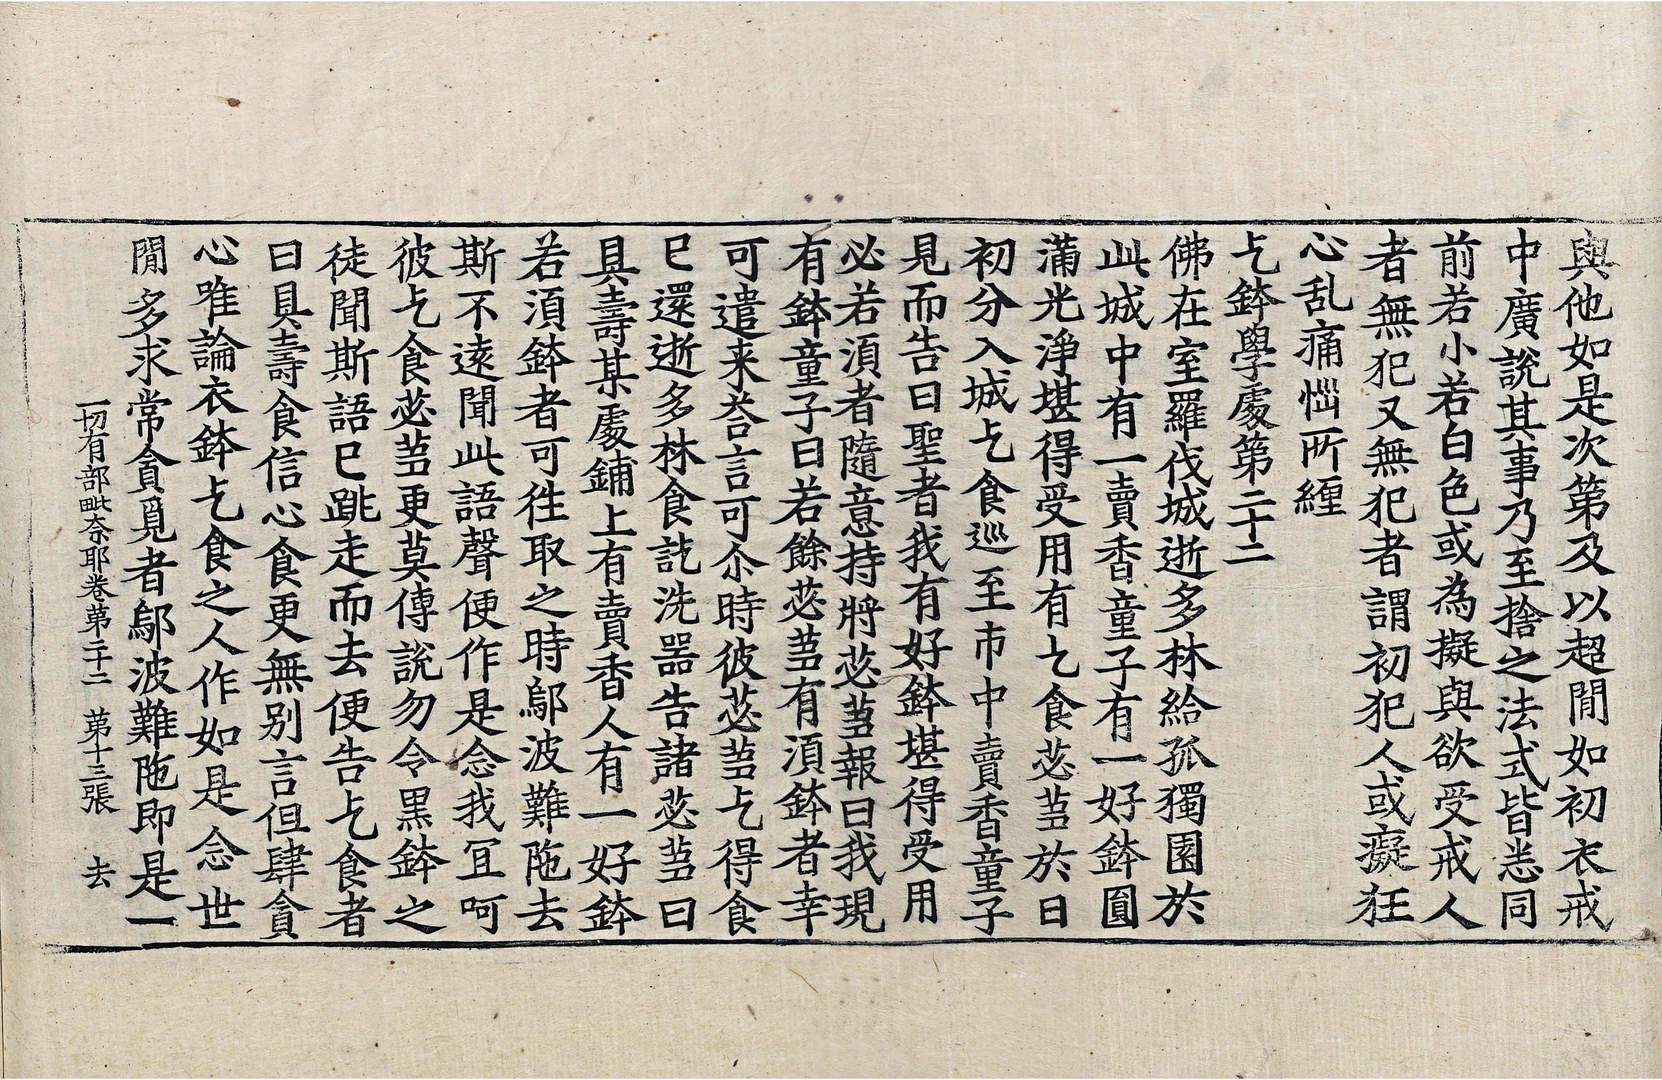 與他如是次第及以超間如初衣戒
中廣說其事乃至捨之法式皆悉同
前若小若白色或為擬與欲受戒人
者無犯又無犯者謂初犯人或癡狂
心乱痛惱所纏
乞鉢學處第二十二
佛在室羅伐城逝多林給孤獨園於
此城中有一賣香童子有一好鉢圓
滿光淨堪得受用有乞食苾芻於日
初分入城乞食巡至市中賣香童子
見而告曰聖者我有好鉢堪得受用
必若須者隨意持將苾芻報曰我現
有鉢童子曰若餘苾芻有須鉢者幸
可遣来荅言可尒時彼苾芻乞得食
已還逝多林食訖洗器告諸苾芻曰
具壽某處鋪上有賣香人有一好鉢
若須鉢者可往取之時鄔波難陁去
斯不遠聞此語聲便作是念我冝呵
彼乞食苾芻更莫傳說勿令黑鉢之
徒聞斯語已跳走而去便告乞食者
曰具壽食信心食更無別言但肆貪
心唯論衣鉢乞食之人作如是念世
間多求常貪覓者鄔波難陁即是一
一切有部毗奈耶卷第二十二　第十三張　去